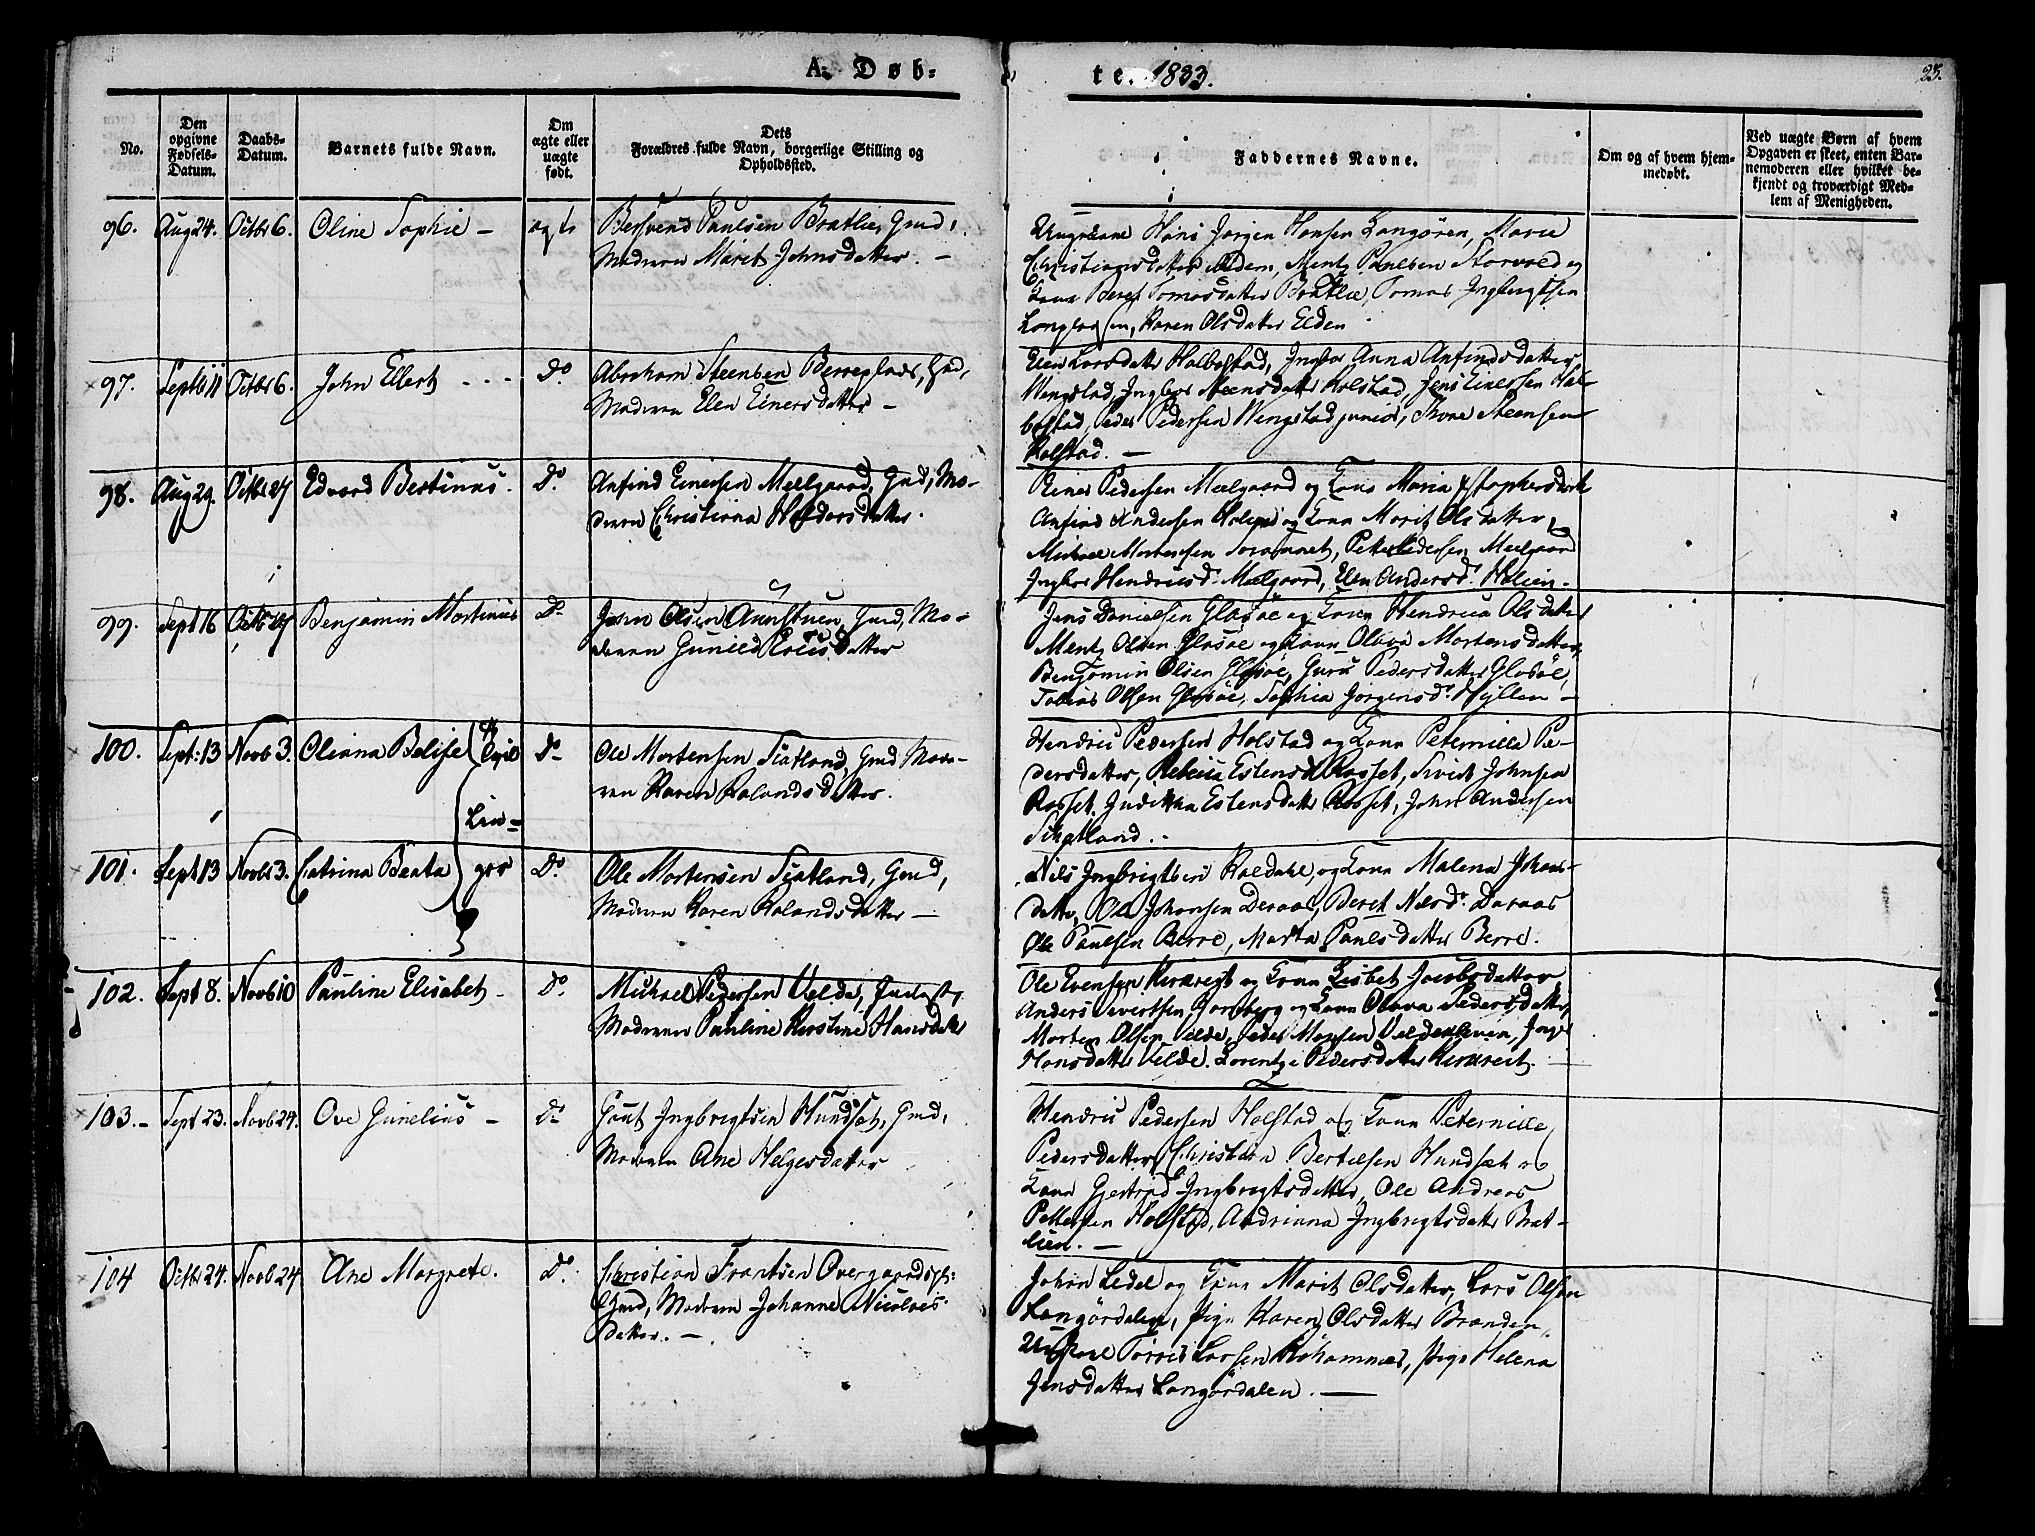 A. Døb-
te. 1833.
25.
No.
Den opgivne Fødsels-Datum.
Daabs-Datum.
Barnets fulde Navn.
Om ægte eller uægte født.
Dets Forældres fulde Navn, borgerlige Stilling og Opholdssted.
Faddernes Navne.
Om og af hvem hjem-medøbt.
Ved uægte Børn af hvem
Opgaven er skeet, enten Bar-
nemoderen eller hvilket be-
kjendt og troværdigt Med-
lem af Menigheden.
96. Aug 24. Octbr 6. Oline Sophie - ægte
Paulsen Bratlie, Gmd,
Moderen Marit Johnsdatter. -
Ungkarl Hans Jørgen Hansen Langøren, Marie
Christiansdatter ibidem, Mentz Paulsen Storvold og
Kone Beret Tomasdatter Bratlie, Tomas Ingbrigtsen
Karen Olsdatter Elden
97. Septb 11 Octbr 6. John Ellert - - - Do.
Abraham Steensen Berreplads, Gmd,
Moderen Elen Einersdatter -
Elen Larsdatter Halbostad, Ingbor Anna Anfindsdatter
Wengstad, Ingbor Steensdatter Holstad, Jens Einersen Hal-
bostad, Peder Pedersen Wengstad junior, Steensen
Holstad. -
98. Aug 29. Octbr 27 Edvard Bertinus. Do.
Anfind Einersen Meelgaard, Gmd, Mo-
deren Christiana
Einer Pedersen Meelgaard og Kone Maria
Anfind Andersen Holien og Kone Marit Olsdatter,
Michael Mortensen Peter Pedersen Meelgaard
Ingbor Hendricsd. Meelgaard, Elen Andersd. Holien.
99. Sept 16 Octbr 27 Benjamin Martinus Do.
John Olsen Aunstuen, Gmd, Mo-
deren Gunild datter
Jens Danielsen Glasøe og Kone Hendrica Olsdatter
Mentz Olsen Glasøe og Kone Olava Mortensdatter,
Benjamin Olsen Glasøe, Guru Pedersdatter Glasøe,
Tobias Olsen Glasøe, Sophia Jørgensd. Hyllen -
100. Sept: 13 Novb 3. Oliana Belise Do.
Ole Mortensen Siatland, Gmd Mode-
ren Karen Rolandsdatter.
Hendric Pedersen Holstad og Kone Peternille Pe-
dersdatter, Rebecca Estensd. Rosset, Sivert Johnsen
Rosset, Estensdatter Rosset, John Andersen
Siatland. -
Tvil-
lin-
ger
101. Sept 13 Novbr 3. Catrina Beata Do.
Ole Mortensen Siatland, Gmd,
Moderen Karen Rolandsdatter -
Nils Ingbrigtsen og Kone Malena Johans-
datter, Ole Johansen Deraas, Beret Nilsd. Deraas
Ole Paulsen Berre, Marta Paulsdatter Berre.
102. Sept 8. Novb 10 Pauline Elisabet - Do.
Michael Pedersen Velde,
Moderen Pauline Kirstine Hansdatter
Ole Evensen og Kone Lisbet Jacobsdatter
Anders Sivertsen og Kone Olava Pedersdatter,
Morten Olsen Velde, Peder
Hansdatter Velde. Pedersdatter
103. - Sept 23. Novb 24. Ove Gunelius - Do
Gaut Ingbrigtsen Hundset, Gmd,
Moderen Ane Helgesdatter
Hendric Pedersen Holstad og Kone Peternille
Pedersdatter, Christian Bertelsen Hundset og
Kone Gjertrud Ingbrigtsdatter, Ole Andreas
Pettersen Holstad, Andrianna Ingbrigtsdatter Brat-
lien. -
104 Octbr 24. Novb 24 Ane Margrete. Do.
Christian Frantsen Overgaards
Gmd, Moderen Johanne Nicolais-
datter. -
Johan Ledel og Kone Marit Olsdatter, Lars Olsen
Langørdalen, Pige Karen Olsdatter Branden,
Ungkarl Larsen Pige Helena
Jensdatter Langørdalen. -